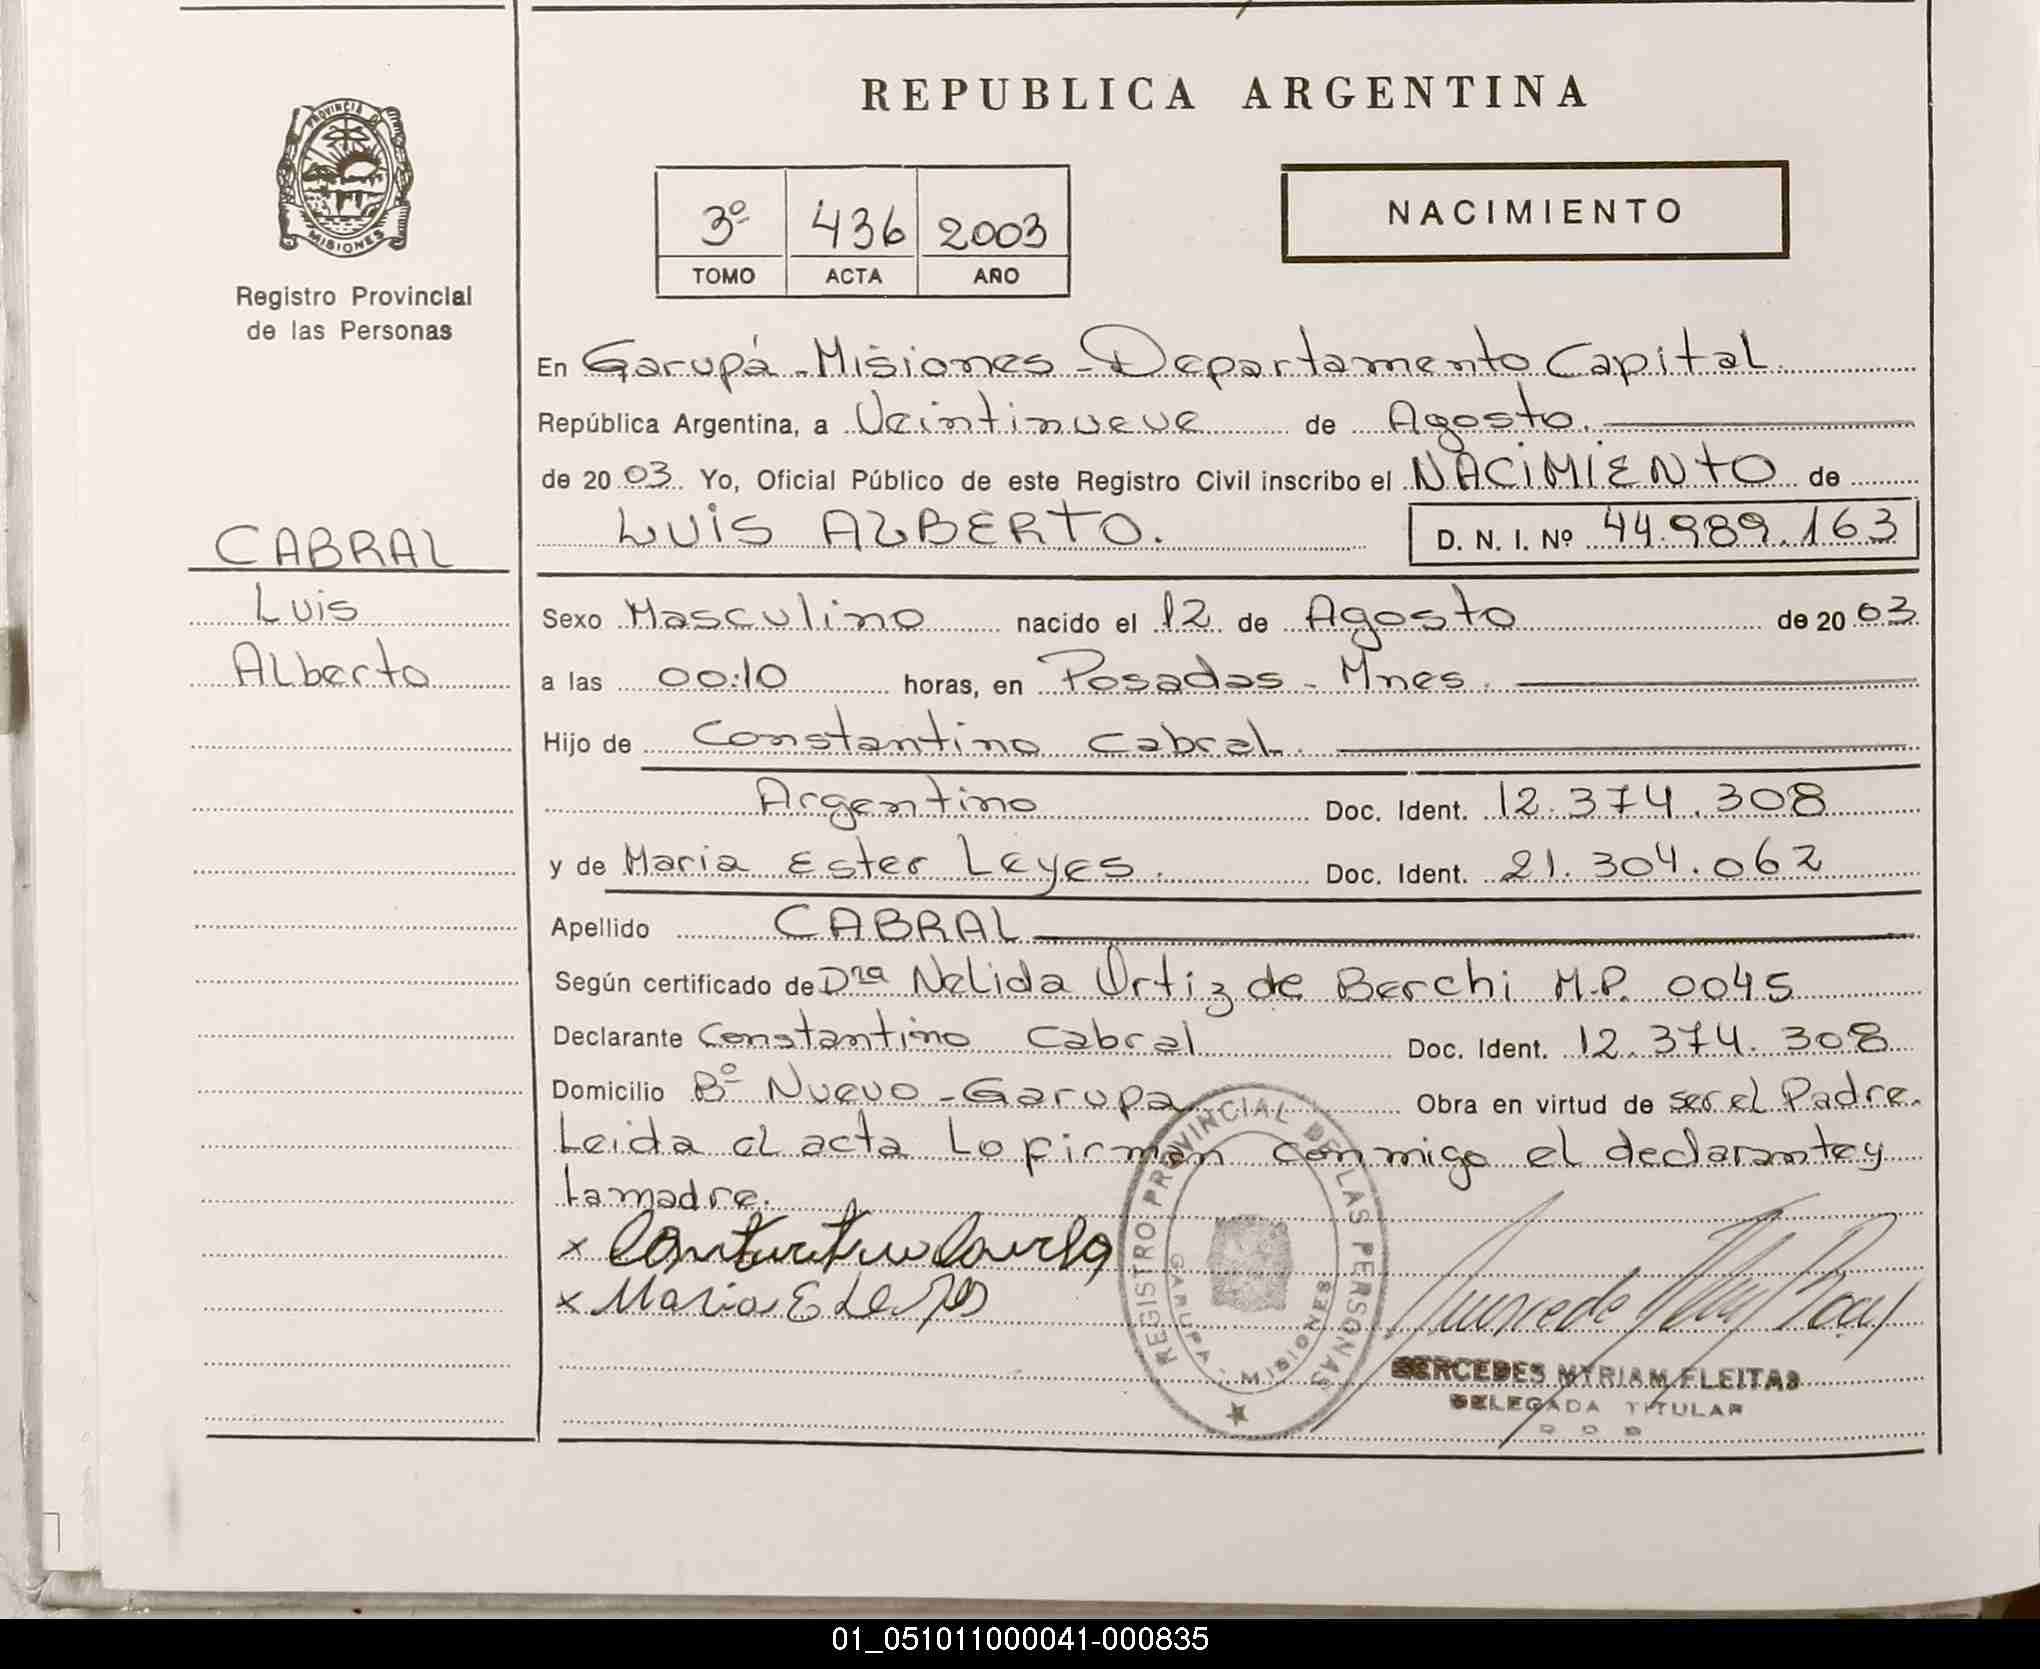 REPUBLICA ARGENTINA
PROVINCIA D
MISIONES
Registro Provincial
de las Personas
3º 436 2003
TOMO ACTA AÑO
NACIMIENTO
En Garupá - Misiones - Departamento Capital
República Argentina, a Veintinueve de Agosto.
de 20 03 Yo, Oficial Público de este Registro Civil inscribo el NACIMIENTO de
LUIS ALBERTO. D. N. I. Nº 44.989.163
CABRAL
Luis
Alberto
Sexo Masculino nacido el 12 de Agosto de 20 03
a las 00:10 horas, en Posadas - Mnes.
Hijo de Constantino Cabral.
Argentino Doc. Ident. 12.374.308
y de Maria Ester Leyes. Doc. Ident. 21.304.062
Apellido CABRAL
Según certificado de Dra Nelida Ortiz de Berchi M.P. 0045
Declarante Constantino Cabral Doc. Ident. 12.374.308
Domicilio Bº Nuevo - Garupa Obra en virtud de ser el Padre.
Leida el acta lo firman conmigo el declarante y
la madre.
x
x Maria E Leyes
REGISTRO PROVINCIAL DE LAS PERSONAS
GARUPA - MISIONES
MERCEDES MYRIAM FLEITAS
DELEGADA TITULAR
01_051011000041-000835